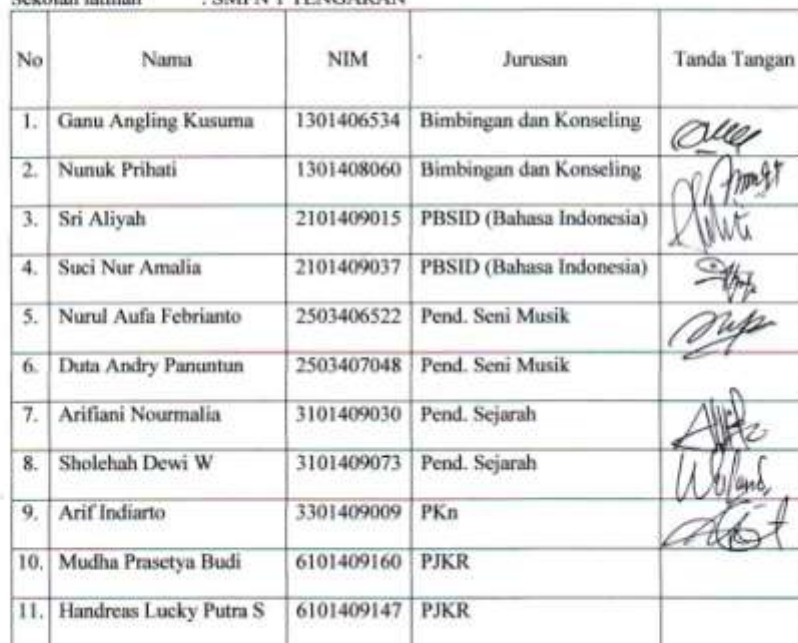 Sekolah latihan : SMPN 1 TENGARAN
No Nama NIM Jurusan Tanda Tangan
1. Ganu Angling Kusuma 1301406534 Bimbingan dan Konseling
2. Nunuk Prihati 1301408060 Bimbingan dan Konseling
3. Sri Aliyah 2101409015 PBSID (Bahasa Indonesia)
4. Suci Nur Amalia 2101409037 PBSID (Bahasa Indonesia)
5. Nurul Aufa Febrianto 2503406522 Pend. Seni Musik
6. Duta Andry Panuntun 2503407048 Pend. Seni Musik
7. Arifiani Nourmalia 3101409030 Pend. Sejarah
8. Sholehah Dewi W 3101409073 Pend. Sejarah
9. Arif Indiarto 3301409009 PKn
10. Mudha Prasetya Budi 6101409160 PJKR
11. Handreas Lucky Putra S 6101409147 PJKR